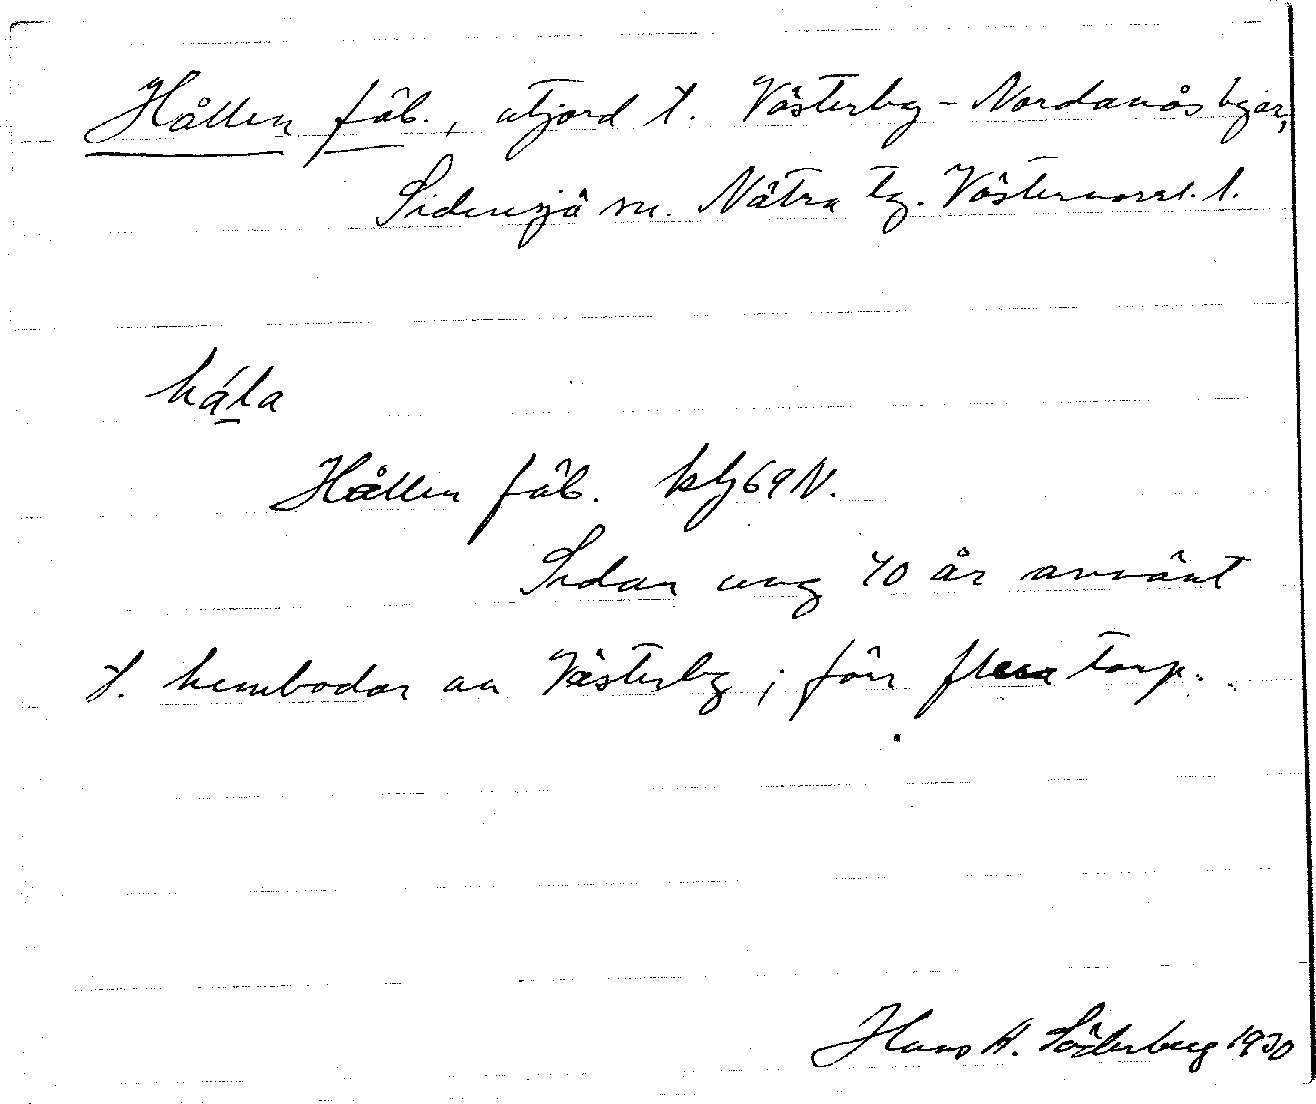 Hållen fäb., utjord t. Västerby - Nordanås byar,
Sidensjö sn. Nätra tg. Västernorrl. l.
hála
Hållen fäb. kbl 69 N.
Sedan ung 70 år använt
t. hembodar av Västerby; förr flera torp.
Hans A. Söderberg 1930